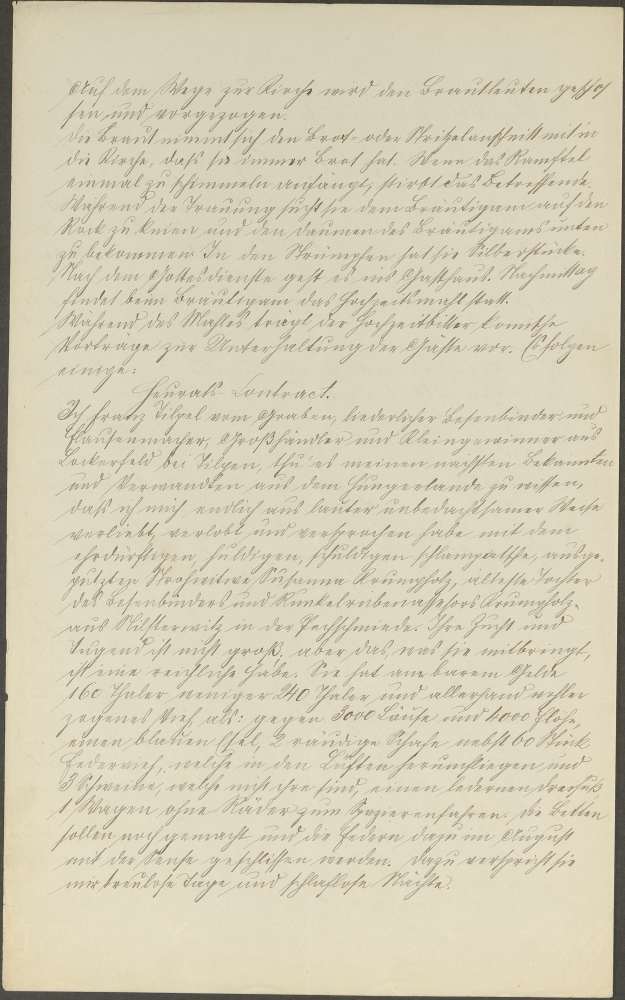 Auf dem Wege zur Kirche wird den Brautleuten geschos
sen und vorgezogen.
Die Braut nimmt sich den Brot- oder Stritzelanschnitt mit in
die Kirche, daß sie immer Brot hat. Wenn das Ramftel
einmal zu schimmeln anfängt, stirbt das Betreffende.
Während der Trauung sucht sie dem Bräutigam auf den
Rock zu knien und den Daumen des Bräutigams unten
zu bekommen. In den Strümpfen hat sie Silberstücke.
Nach dem Gottesdienste geht es ins Gasthaus. Nachmittag
findet beim Bräutigam das Hochzeitsmahl statt.
Während des Mahles trägt der Hochzeitbitter komische
Vorträge zur Unterhaltung der Gäste vor. Es folgen
einige:
Heurats-Contract.
Ich Franz Tilgel vom Graben, liederlicher Besenbinder und
Flausenmacher, Großhändler und Kleingewinner aus
Lockerfeld bei Tilgen, thu' es meinen nächsten Bekannten
und Verwandten aus dem Hungerlande zu wissen,
daß ich mich endlich aus lauter unbedachtsamer Weise
verliebt, verlobt und versprochen habe mit dem
ehrdürftigen, huldigen, schuldigen, ausge-
putzten Strohwitwe Susanna Krumpholz, älteste Tochter
des Besenbinders und Runkelrübenassesors Krumpholz
aus in der Pechschmiede. Ihre Zucht und
Tugend ist nicht groß, aber das, was sie mitbringt,
ist eine reichliche Habe. Sie hat an barem Gelde
160 Thaler weniger 240 Thaler und allerhand
zogenes Vieh als: gegen 3000 Läuse und 4000 Flöhe,
einen blauen Esel, 2 räudige Schafe nebst 60 Stück
Federvieh, welche in den Lüften herumfliegen, und
3 Schweine, welche nicht ihre sind, einen ledernen Dreifuß
1 Wagen ohne Räder zum Spazierenfahren. Die Betten
sollen noch gemacht und die Federn dazu im August
mit der Sense geschlissen werden. Dazu verspricht sie
mir treulose Tage und schlaflose Nächte.